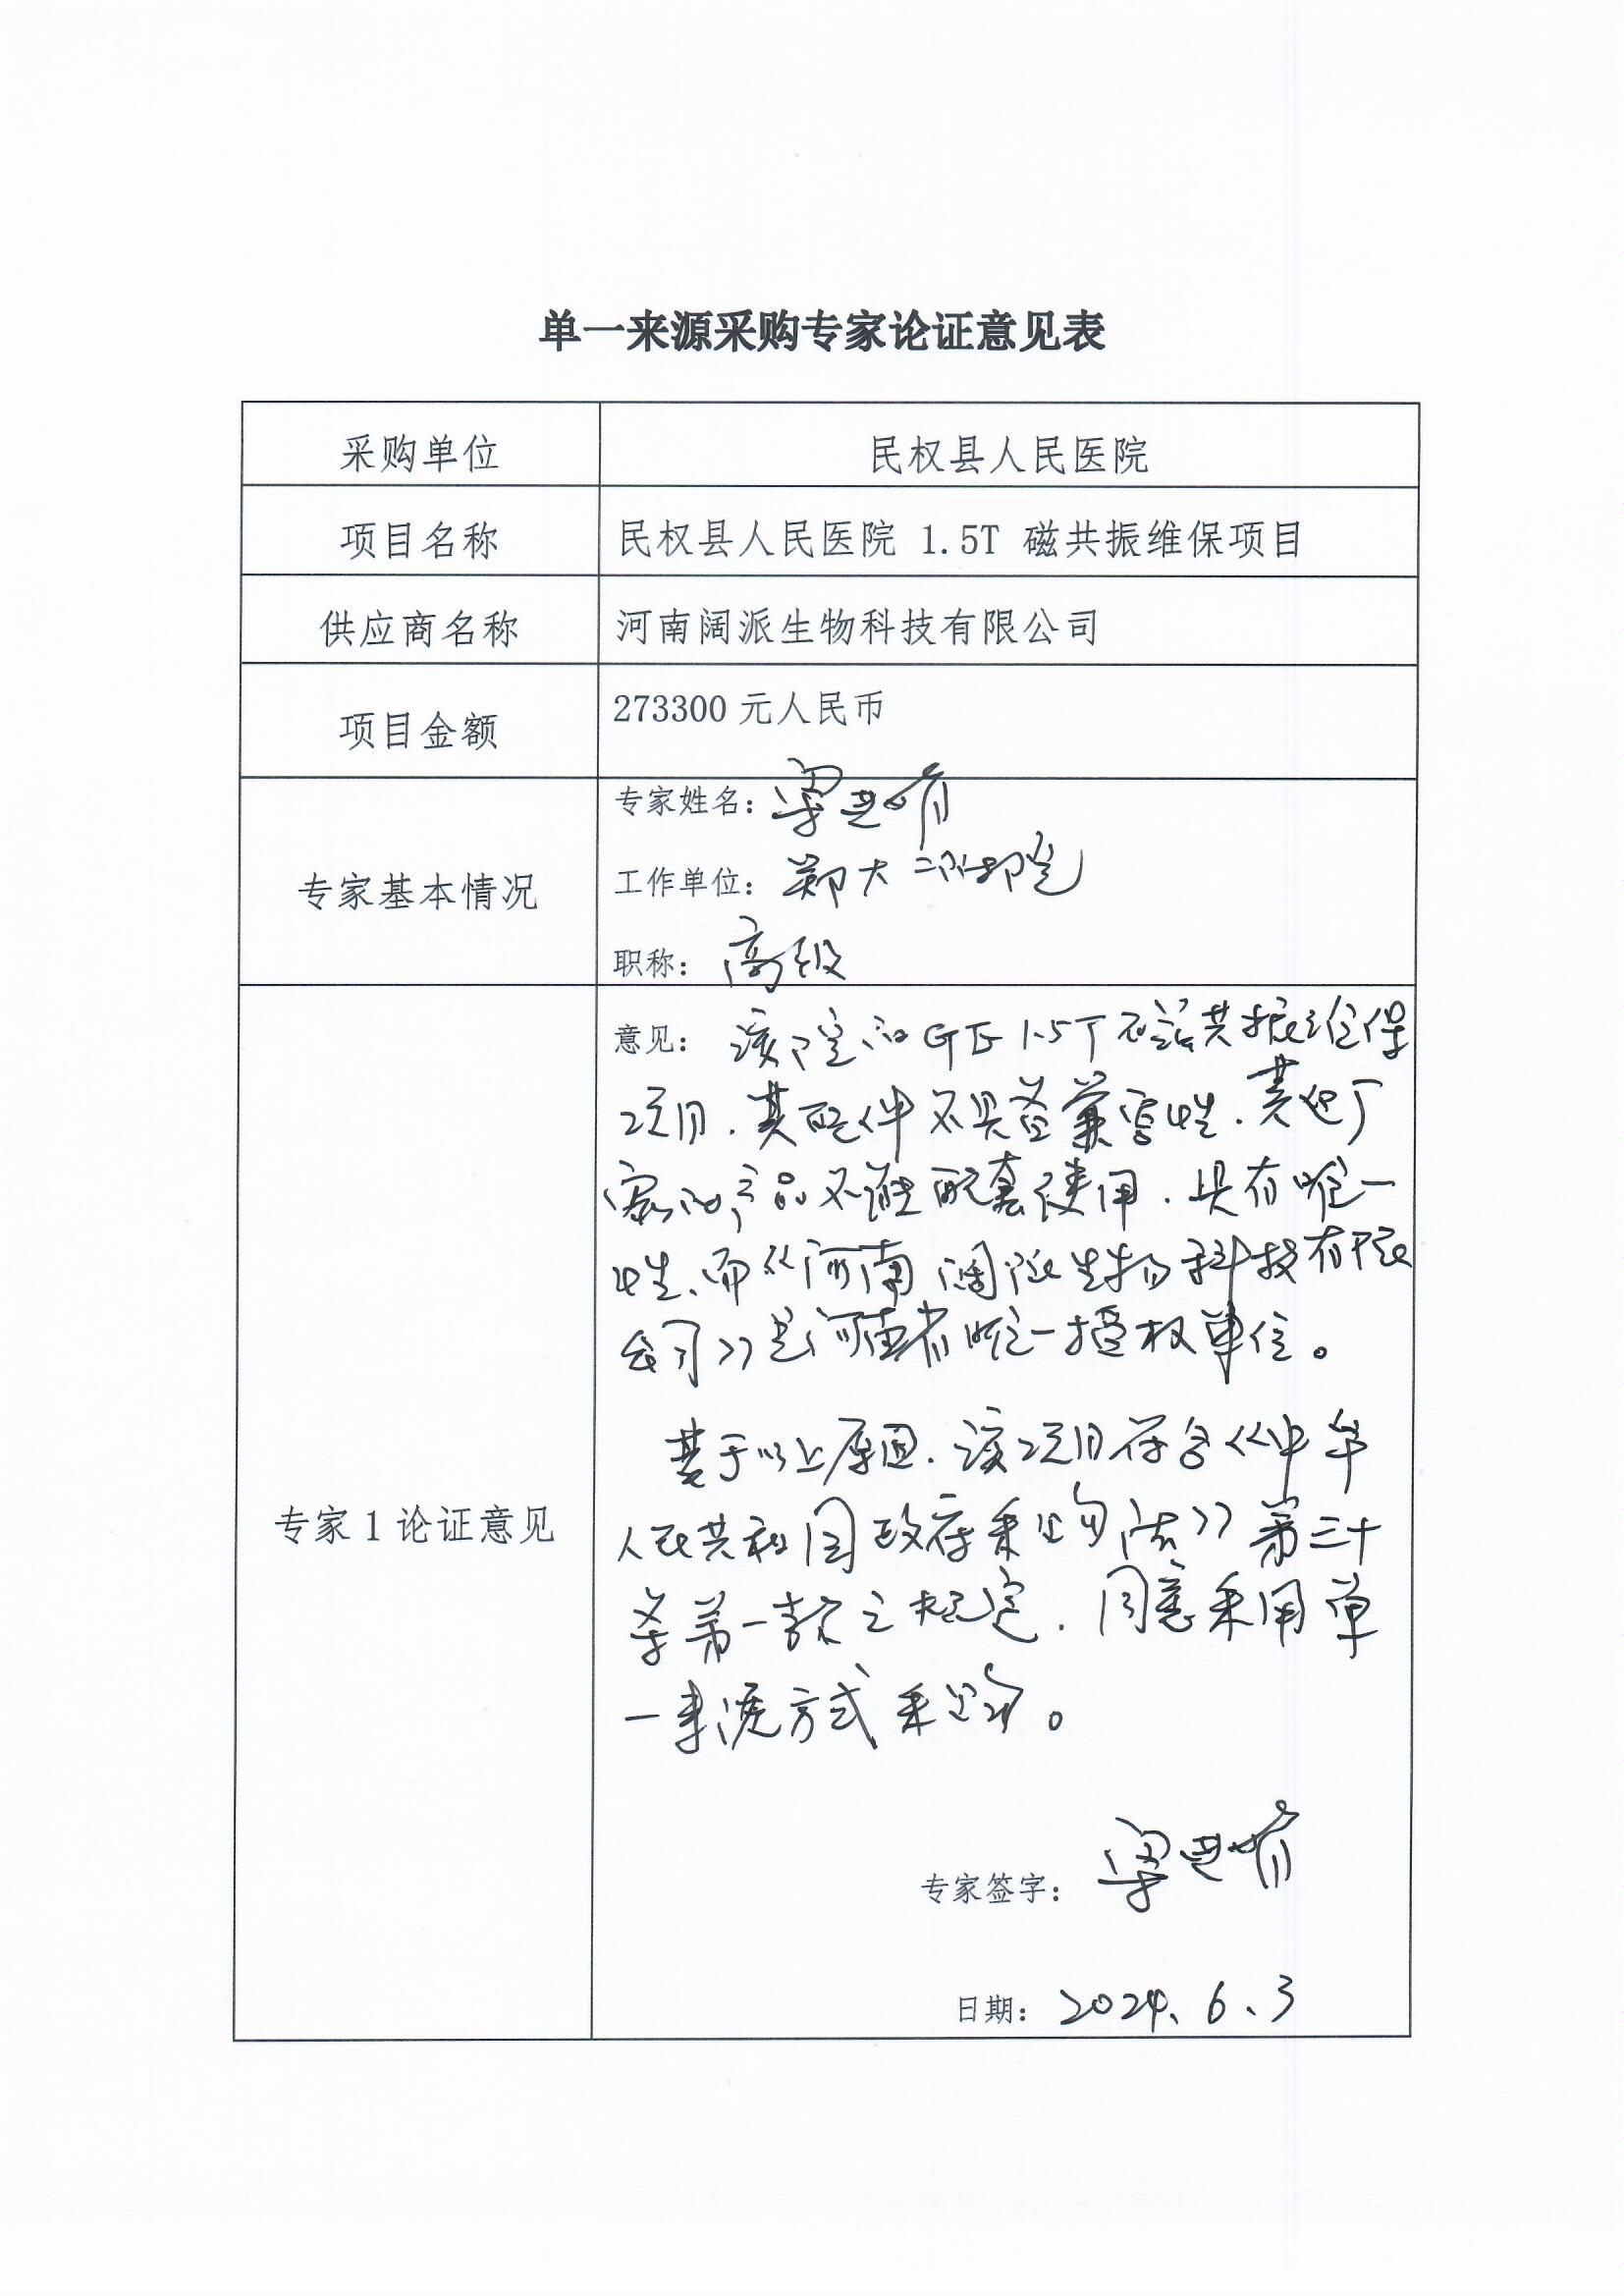 单一来源采购专家论证意见表
采购单位 民权县人民医院
项目名称 民权县人民医院 1.5T 磁共振维保项目
供应商名称 河南阔派生物科技有限公司
项目金额 273300元人民币
专家基本情况
专家姓名：梁
工作单位：郑大二附院
职称：高级
专家1论证意见
意见：该院的GE 1.5T磁共振维保
项目.其配件不具备兼容性.其他厂
家的产品不能配套使用.具有唯一
性、而《河南阔派生物科技有限
公司》是河南省唯一授权单位。
基于以上原因.该项目符合《中华
人民共和国政府采购法》第三十
条第一款之规定.同意采用单
一来源方式采购。
专家签字：梁
日期：2024、6、3